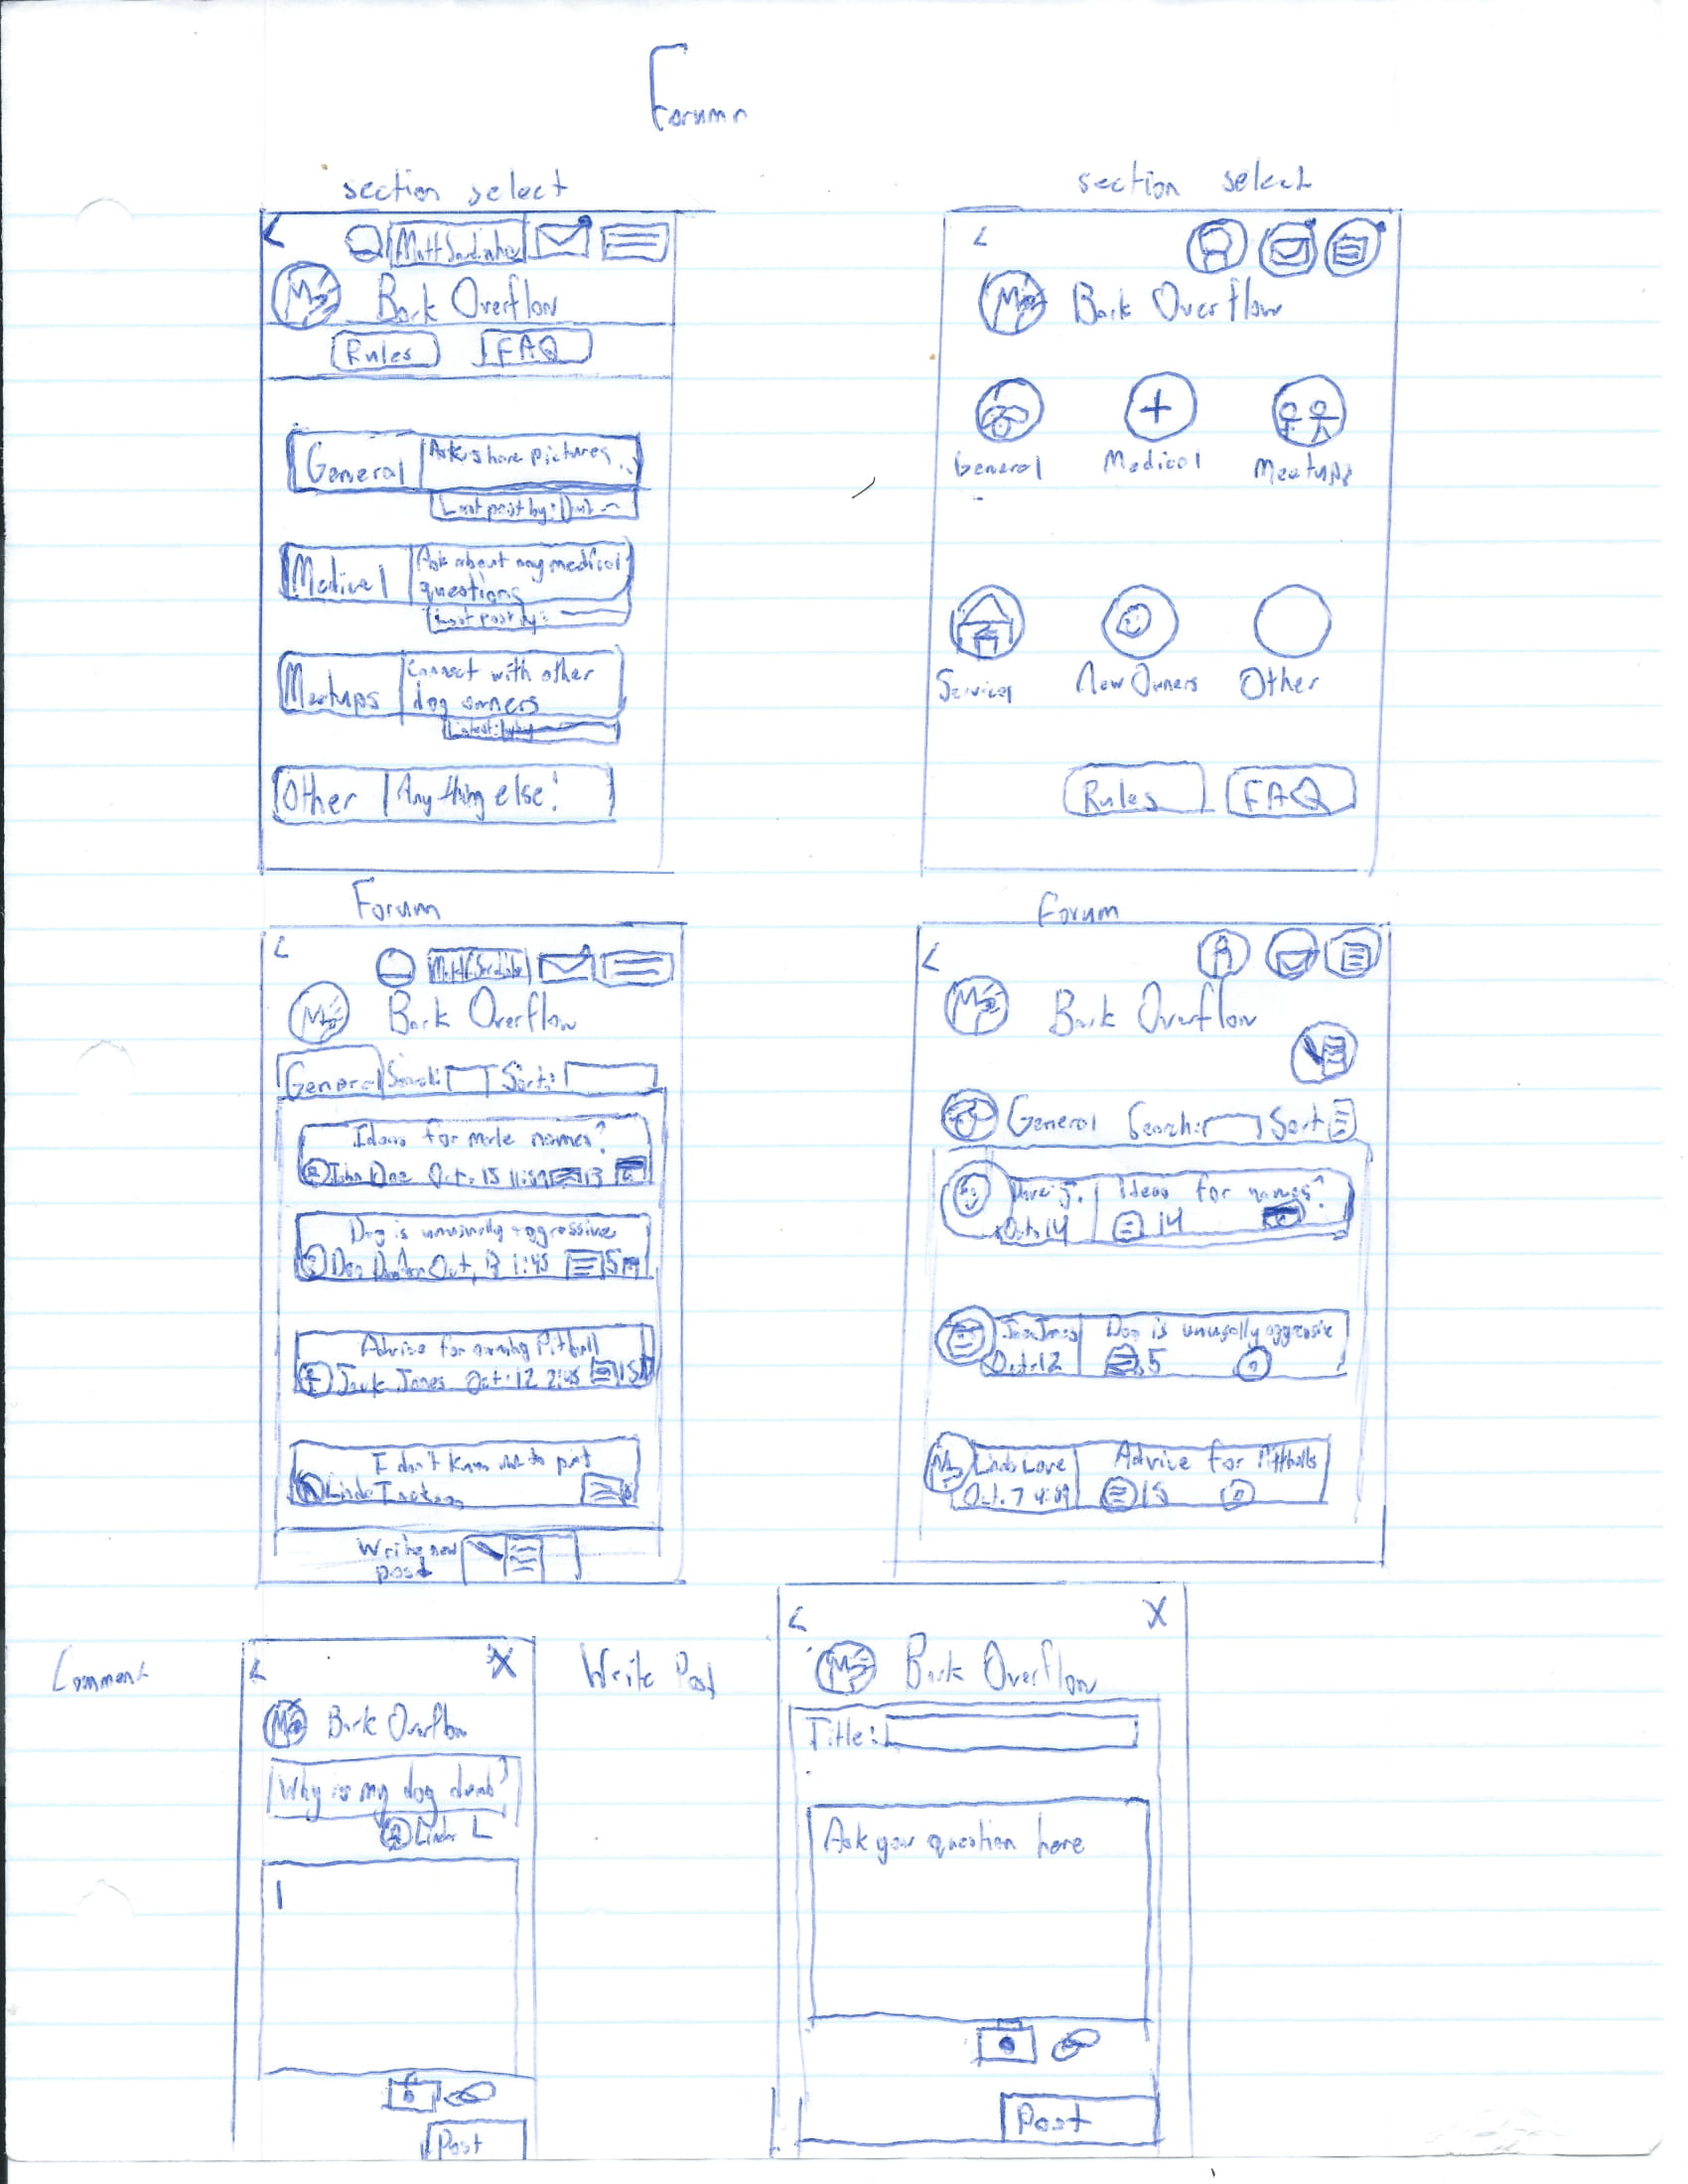 Forum
section select
Matt
Bark Overflow
Rules FAQ
General Ask, share pictures
Last post by:
Medical Ask about any medical
questions
Last post by:
Meetups Connect with other
dog owners
Latest:
Other Anything else!
section select
Bark Overflow
General Medical Meetups
Services New Owners Other
Rules FAQ
Forum
Bark Overflow
General Search: Sort:
Ideas for male names?
John Doe Oct. 15 11:59 13
Dog is unusually aggressive
Dog 1:45 5
Advice for owning Pitbull
Jack Jones Oct. 12 2:45 15
I don't know to put
Linda
Write new
post
Forum
Bark Overflow
General Search: Sort
Dave J. Ideas for names?
Oct. 14 14
Dog is unusally aggressive
Oct. 12 5
Linda Love Advice for Pitbulls
Oct. 7 15
Comment
X
Bark Overflow
Why is my dog dumb?
Linda L
Post
Write Post
X
Bark Overflow
Title:
Ask your question here
Post